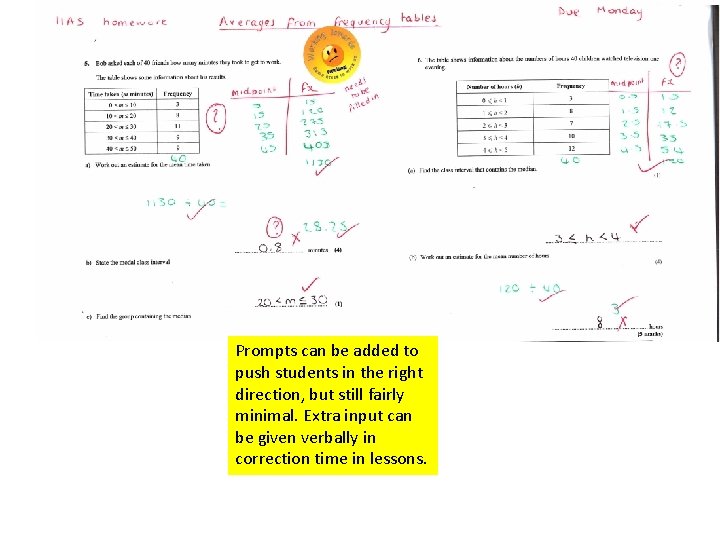 11A5 homework Averages from frequency tables Due Monday
5. Bob asked each of 40 friends how many minutes they took to get to work.
The table shows some information about his results.
Time taken (m minutes) Frequency midpoint fx
0 < m ≤ 10 3 5 15
10 < m ≤ 20 8 15 120
20 < m ≤ 30 11 25 275
30 < m ≤ 40 9 35 315
40 < m ≤ 50 9 45 405
40 1130
? needs to be filled in
Working towards
a) Work out an estimate for the mean time taken
1130 ÷ 40 =
? 28.25
0.8 minutes (4)
b) State the modal class interval
20 < m ≤ 30 (1)
c) Find the group containing the median
6. The table shows information about the numbers of hours 40 children watched television one evening.
Number of hours (h) Frequency midpoint fx
0 ≤ h < 1 3 0.5 1.5
1 ≤ h < 2 8 1.5 12
2 ≤ h < 3 7 2.5 17.5
3 ≤ h < 4 10 3.5 35
4 ≤ h < 5 12 4.5 54
40 120
?
(a) Find the class interval that contains the median.
(1)
3 ≤ h < 4
(b) Work out an estimate for the mean number of hours
(4)
120 ÷ 40
3
8 hours
(5 marks)
Prompts can be added to
push students in the right
direction, but still fairly
minimal. Extra input can
be given verbally in
correction time in lessons.